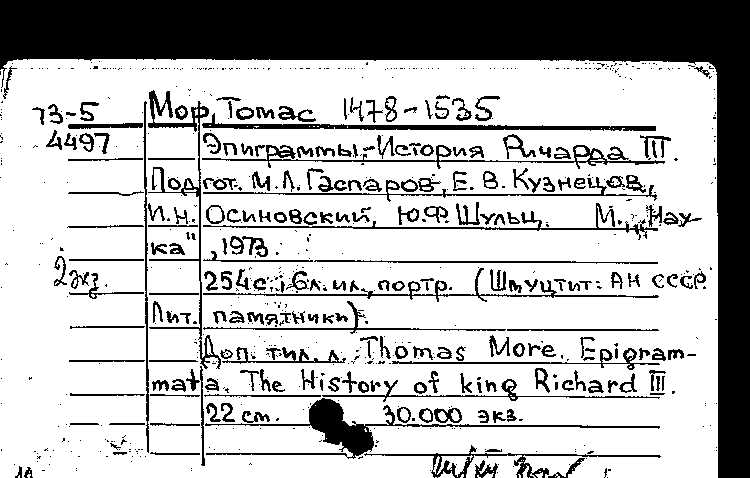 73-5 Мор, Томас 1478-1535
4497 Эпиграммы.-История Ричарда III.
Подгот. М.Л. Гаспаров, Е.В. Кузнецов,
И.Н. Осиновский, Ю.Ф. Шульц. М., „Нау-
ка", 1973.
2 экз. 254 с.; 6 л. ил., портр. (Шмуцтит: АН СССР.
Лит. памятники).
Доп. тит. л. Thomas More. Epigram-
mata. The History of king Richard III.
22 см. 30.000 экз.